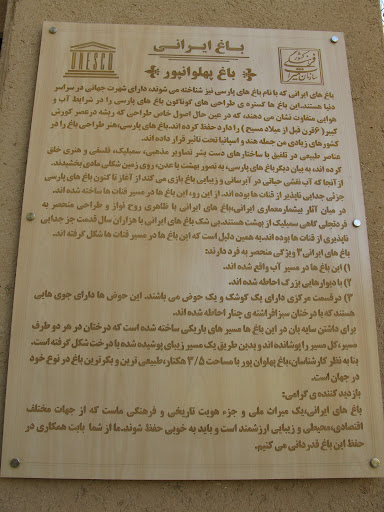 UNESCO
باغ ایرانی
باغ پهلوانپور
باغ های ایرانی که با نام باغ های پارسی نیز شناخته می شوند، دارای شهرت جهانی در سراسر
دنیا هستند.این باغ ها گستره ی طراحی های گوناگون باغ های پارسی را در شرایط آب و
هوایی متفاوت نشان می دهند، که در عین حال اصول خاص طراحی که ریشه در عصر کورش
کبیر (۶قرن قبل از میلاد مسیح) را دارد حفظ کرده اند.باغ های پارسی،هنر طراحی باغ را در
کشورهای زیادی من جمله هند و اسپانیا تحت تاثیر قرار داده اند.
عناصر طبیعی در تلفیق با ساختارهای دست بشر تصاویر مذهبی، سمبلیک، فلسفی و هنری خلق
کرده اند، به بیان دیگر باغ های پارسی، به تصور بهشت یا عدن، روی زمین شکلی مادی بخشیدند.
از آنجا که آب نقشی حیاتی در آبرسانی و زیبایی باغ بازی می کند، از آغاز تا کنون باغ های پارسی
جزئی جدایی ناپذیر از قنات ها بوده اند. از این رو، این باغ ها در مسیر قنات ها ساخته شده اند.
در میان آثار بیشمار معماری ایرانی،باغ های ایرانی با ظاهری روح نواز و طراحی منحصر به
فرد،تجلی گاهی سمبلیک از بهشت هستند.بی شک باغ های ایرانی با هزاران سال قدمت جز جدایی
ناپذیری از قنات ها بوده اند.به همین دلیل است که این باغ ها در مسیر قنات ها شکل گرفته اند.
باغ های ایرانی۳ ویژگی منحصر به فرد دارند:
۱) این باغ ها در مسیر آب واقع شده اند.
۲) با دیوارهایی بزرگ احاطه شده اند.
۳) در قسمت مرکزی دارای یک کوشک و یک حوض می باشند. این حوض ها دارای جوی هایی
هستند که با درختان سبز افراشته ی چنار احاطه شده اند.
برای داشتن سایه بان در این باغ ها مسیر های باریکی ساخته شده است که درختان در هر دو طرف
مسیر،کل مسیر را پوشانده اند و بدین طریق یک مسیر زیبای پوشیده شده با درخت شکل گرفته است.
بنا به نظر کارشناسان، باغ پهلوان پور با مساحت ۳/۵ هکتار، طبیعی ترین و بکرترین باغ در نوع خود
در جهان است.
بازدید کننده ی گرامی:
باغ های ایرانی،یک میراث ملی و جزء هویت تاریخی و فرهنگی ماست که از جهات مختلف
اقتصادی،محیطی و زیبایی ارزشمند است و باید به خوبی حفظ شوند.ما از شما بابت همکاری در
حفظ این باغ قدردانی می کنیم.